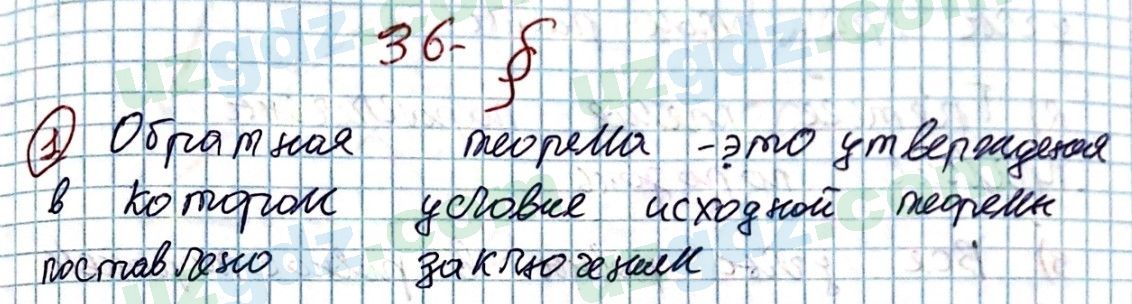 36-§
1 Обратная теорема - это утверждения
в котором условие исходной теоремы
поставлено заключением
uzgdz.com